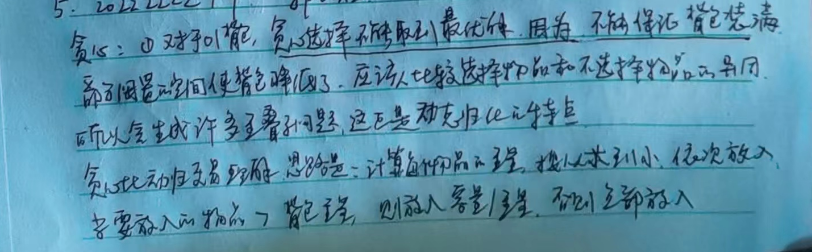 贪心：① 对于01背包，贪心选择不能取到最优解，因为 不能保证 背包装满
部分闲置的空间使背包降低了。应该比较选择物品和不选择物品的异同
所以会生成许多重叠子问题，这正是动态归化的特点
贪心比动归更易理解 思路是：计算每种物品的重量，按从求到小，依次放入，
若要放入的物品 > 背包重量，则放入容量/重量，否则全部放入